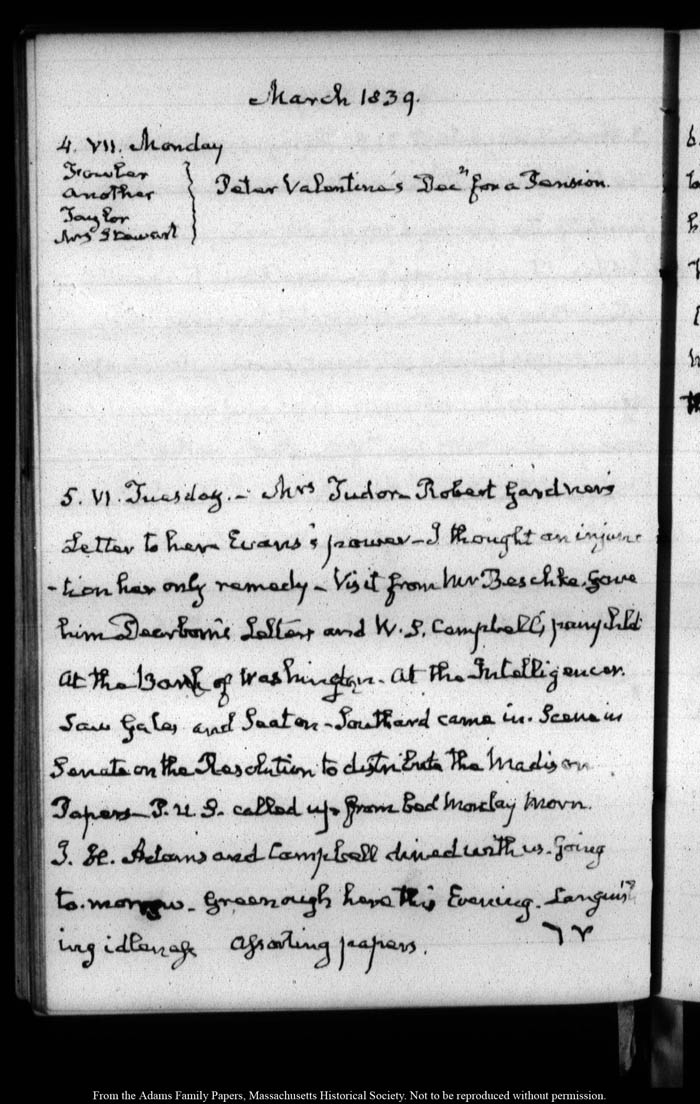 March 1839.
4. VII. Monday
Fowler
another
Taylor
Mrs Stewart
Peter Valentine's Decn for a Pension.
5. VI. Tuesday. - Mrs Tudor - Robert Gardner's
Letter to her - Evans's power - I thought an injunc
-tion her only remedy - Visit from Mr Beschke. Gave
him Dearborn's Letter and W. S. Campbell's, pang
at the Bank of Washington. At the Intelligencer.
Saw Gales and Seaton - Southard came in. Scene in
Senate on the Resolution to distribute the Madison
Papers - P. U. S. called up from bed Monday Morn.
J. H. Adams and Campbell dined with us. Going
to-morrow. Greenough here this Evening. Languish
ing idleness assorting papers.
From the Adams Family Papers, Massachusetts Historical Society. Not to be reproduced without permission.